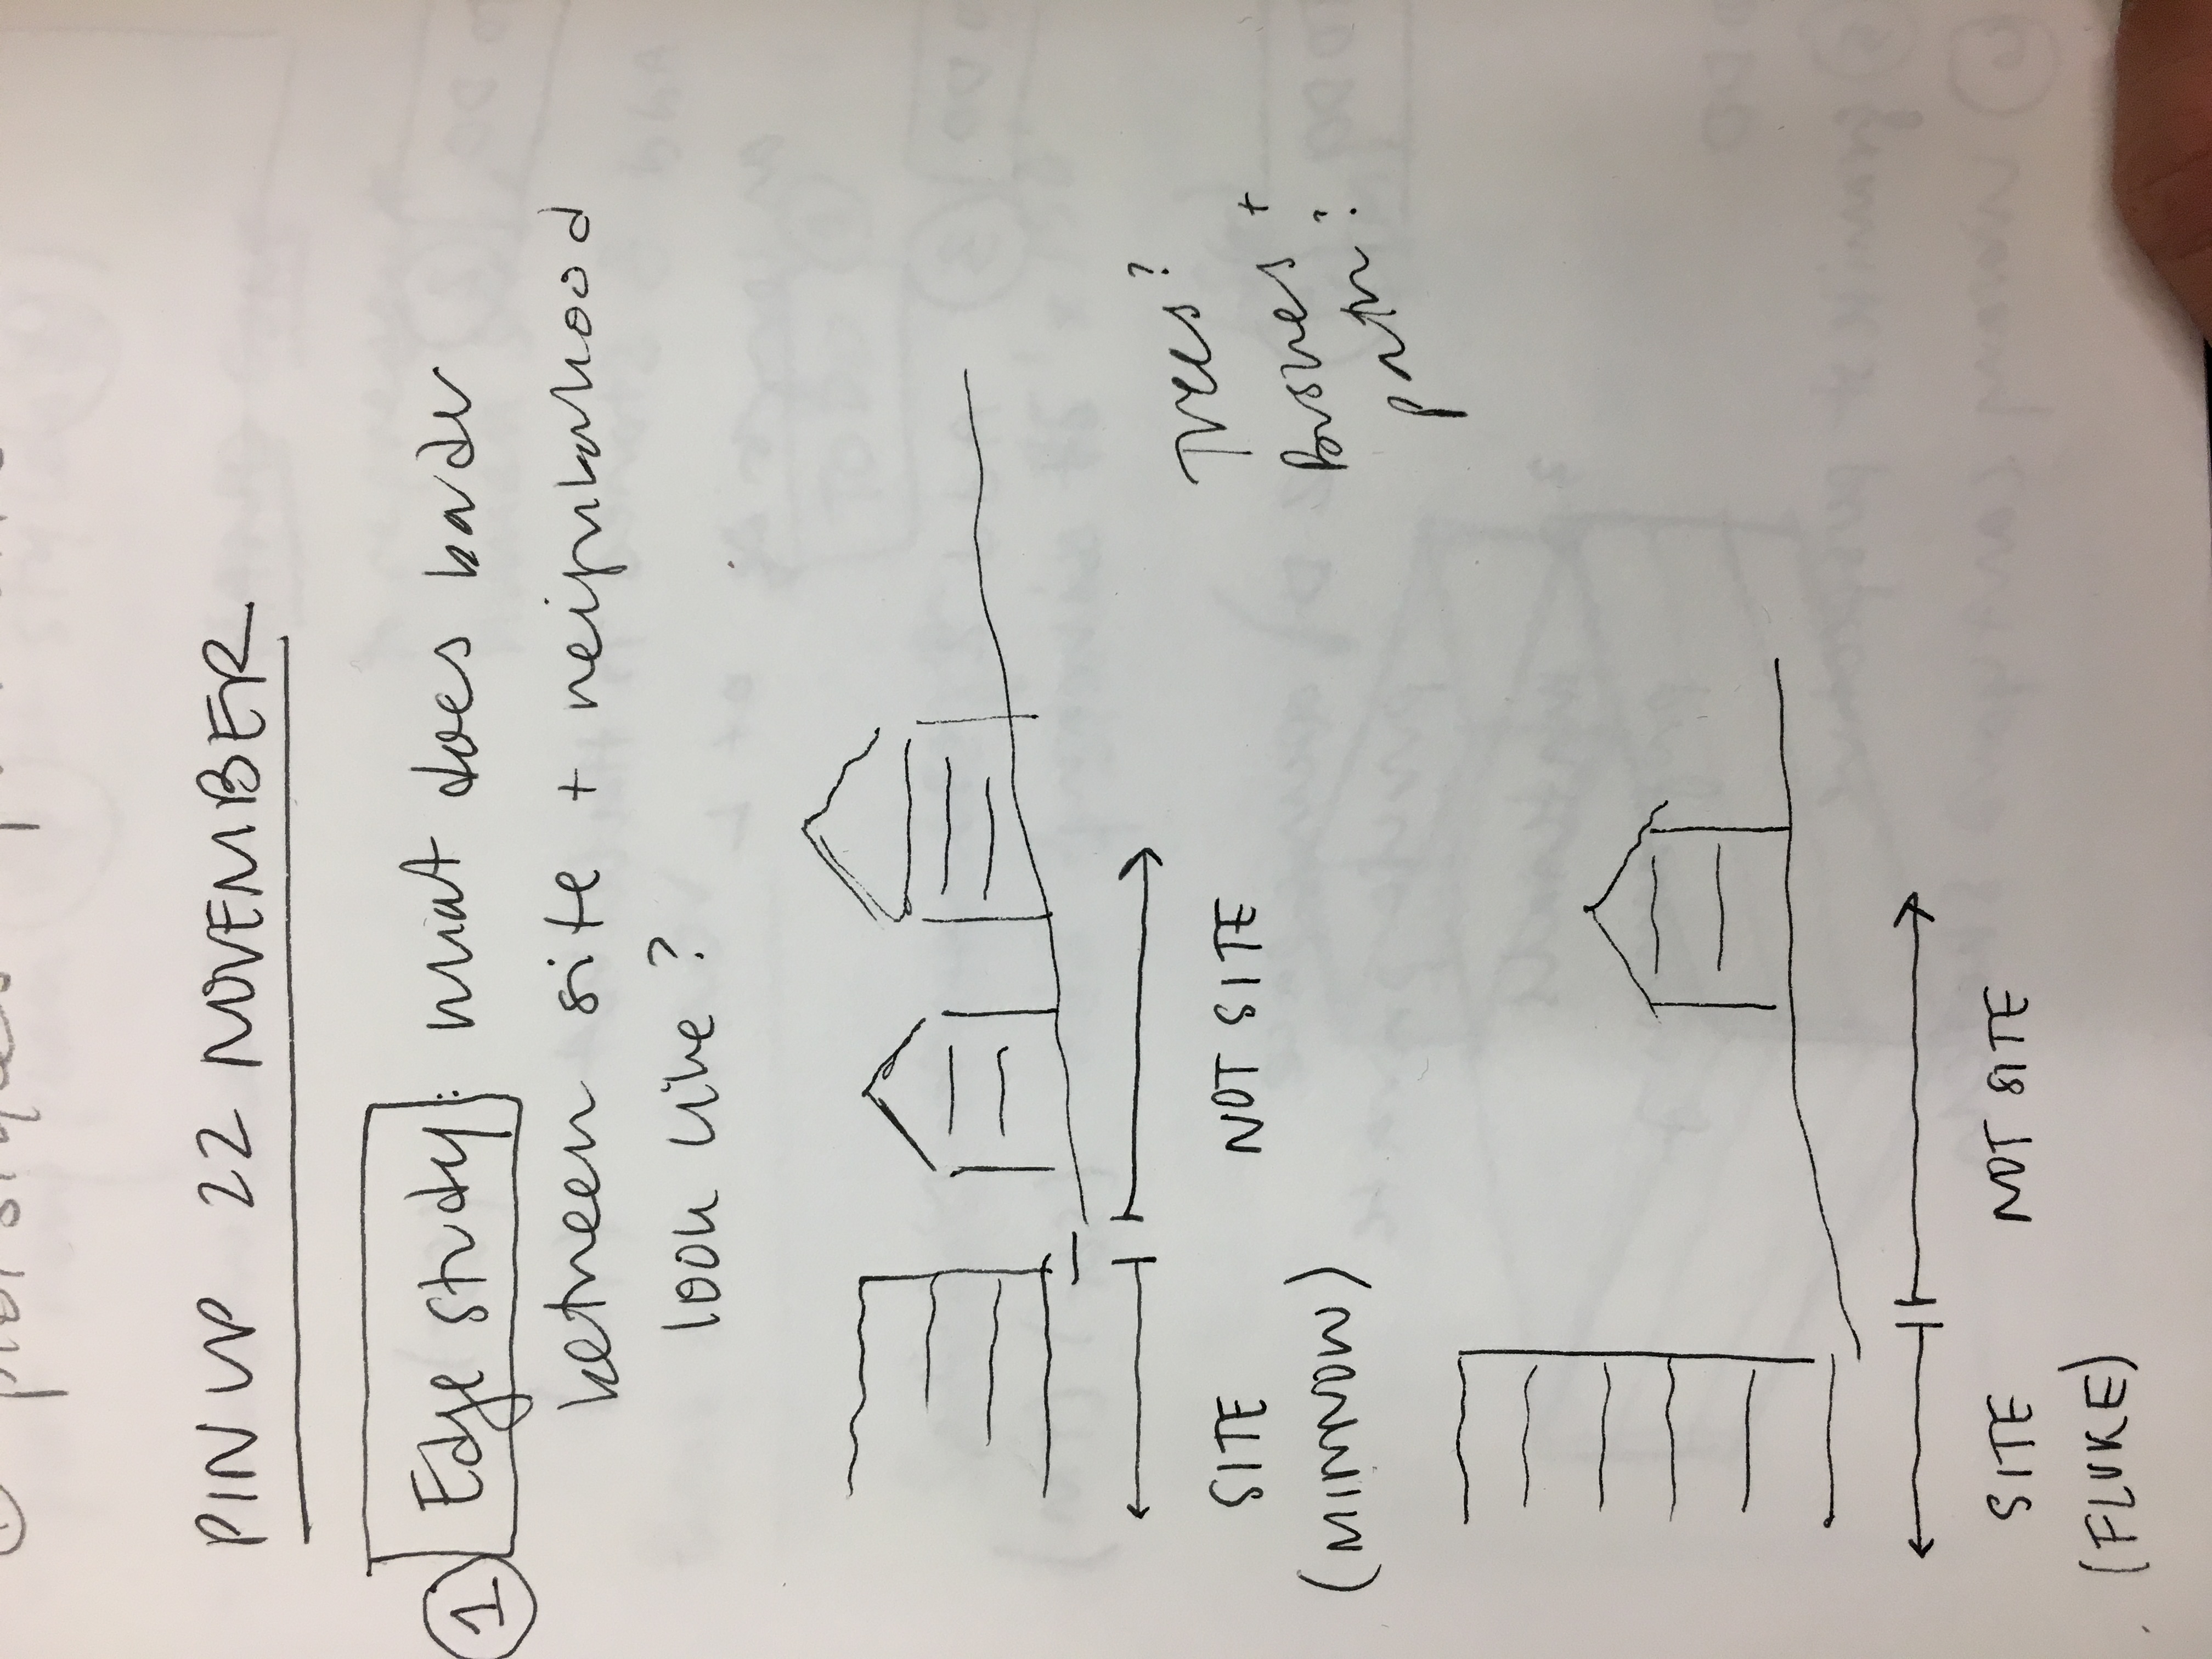 PIN UP 22 NOVEMBER
① Edge study: what does border
between site + neighborhood
look like?
Trees?
Bushes +
path?
SITE NOT SITE
(MINNOW)
SITE NOT SITE
(FLUKE)